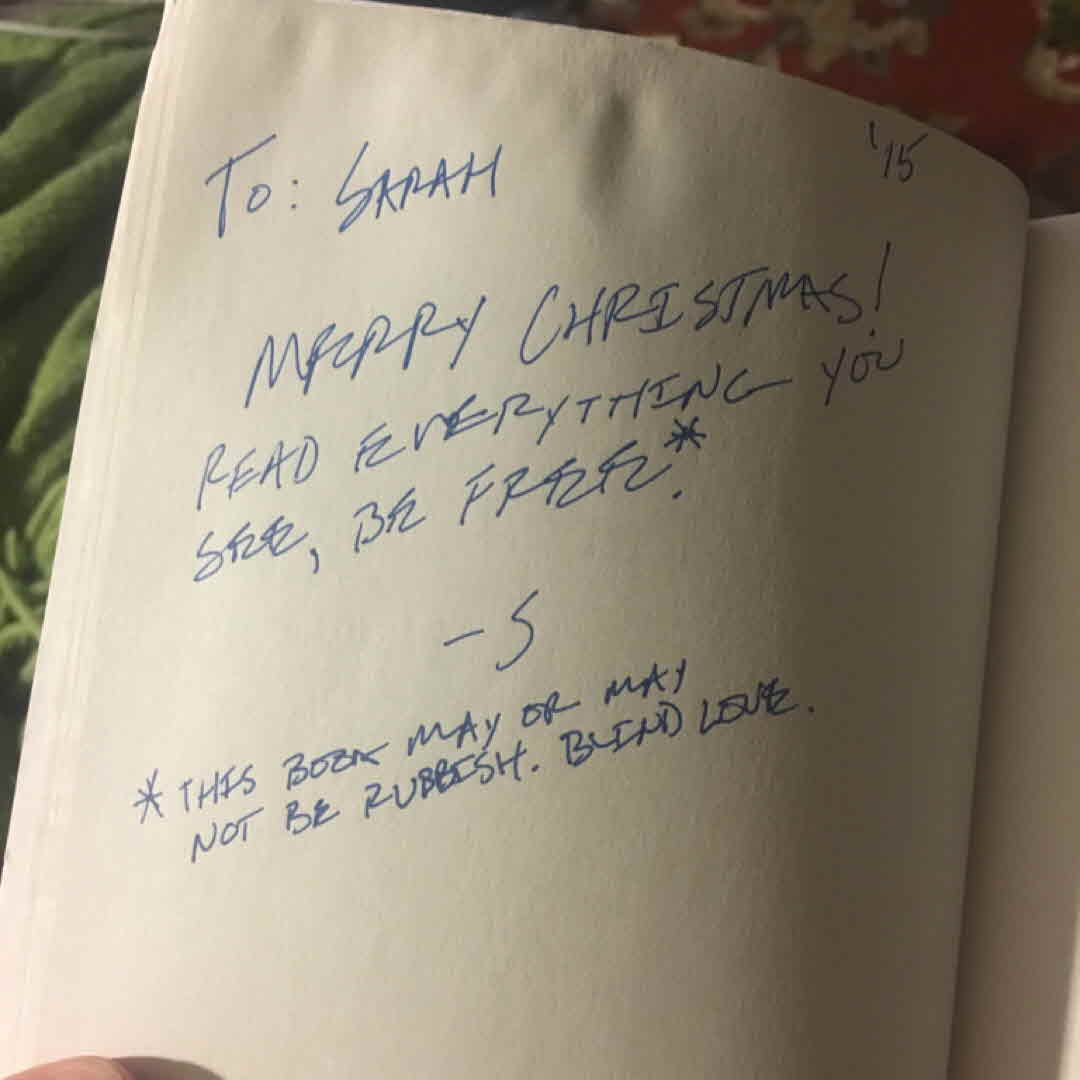 '15
TO: SARAH
MERRY CHRISTMAS!
READ EVERYTHING YOU
SEE, BE FREE*.
- S
* THIS BOOK MAY OR MAY
NOT BE RUBBISH. BLIND LOVE.